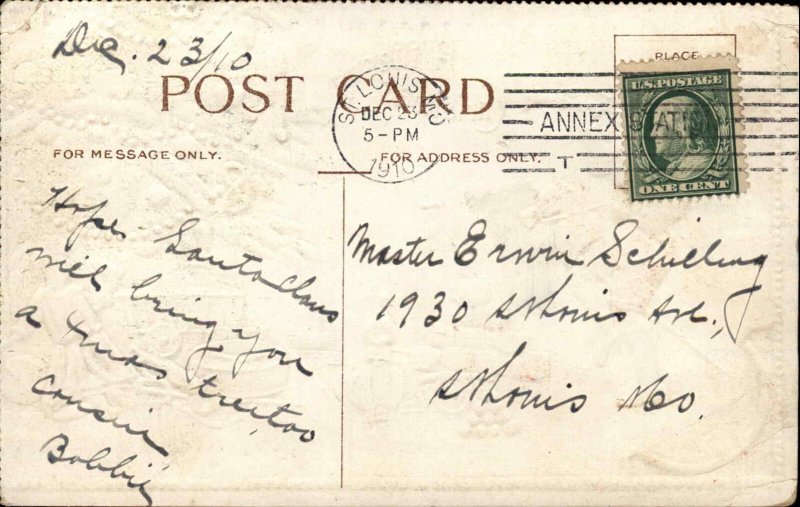 Dec. 23/10
POST CARD
PLACE
U.S. POSTAGE
ONE CENT
ST. LOUIS, MO
DEC 23
5-PM
1910
ANNEX STATION
T
FOR MESSAGE ONLY.
FOR ADDRESS ONLY.
Hope Santa Claus
will bring you
a Xmas tree, too
cousin
Bobbie
Master Erwin Schilling
1930 St Louis Ave.,
St Louis Mo.